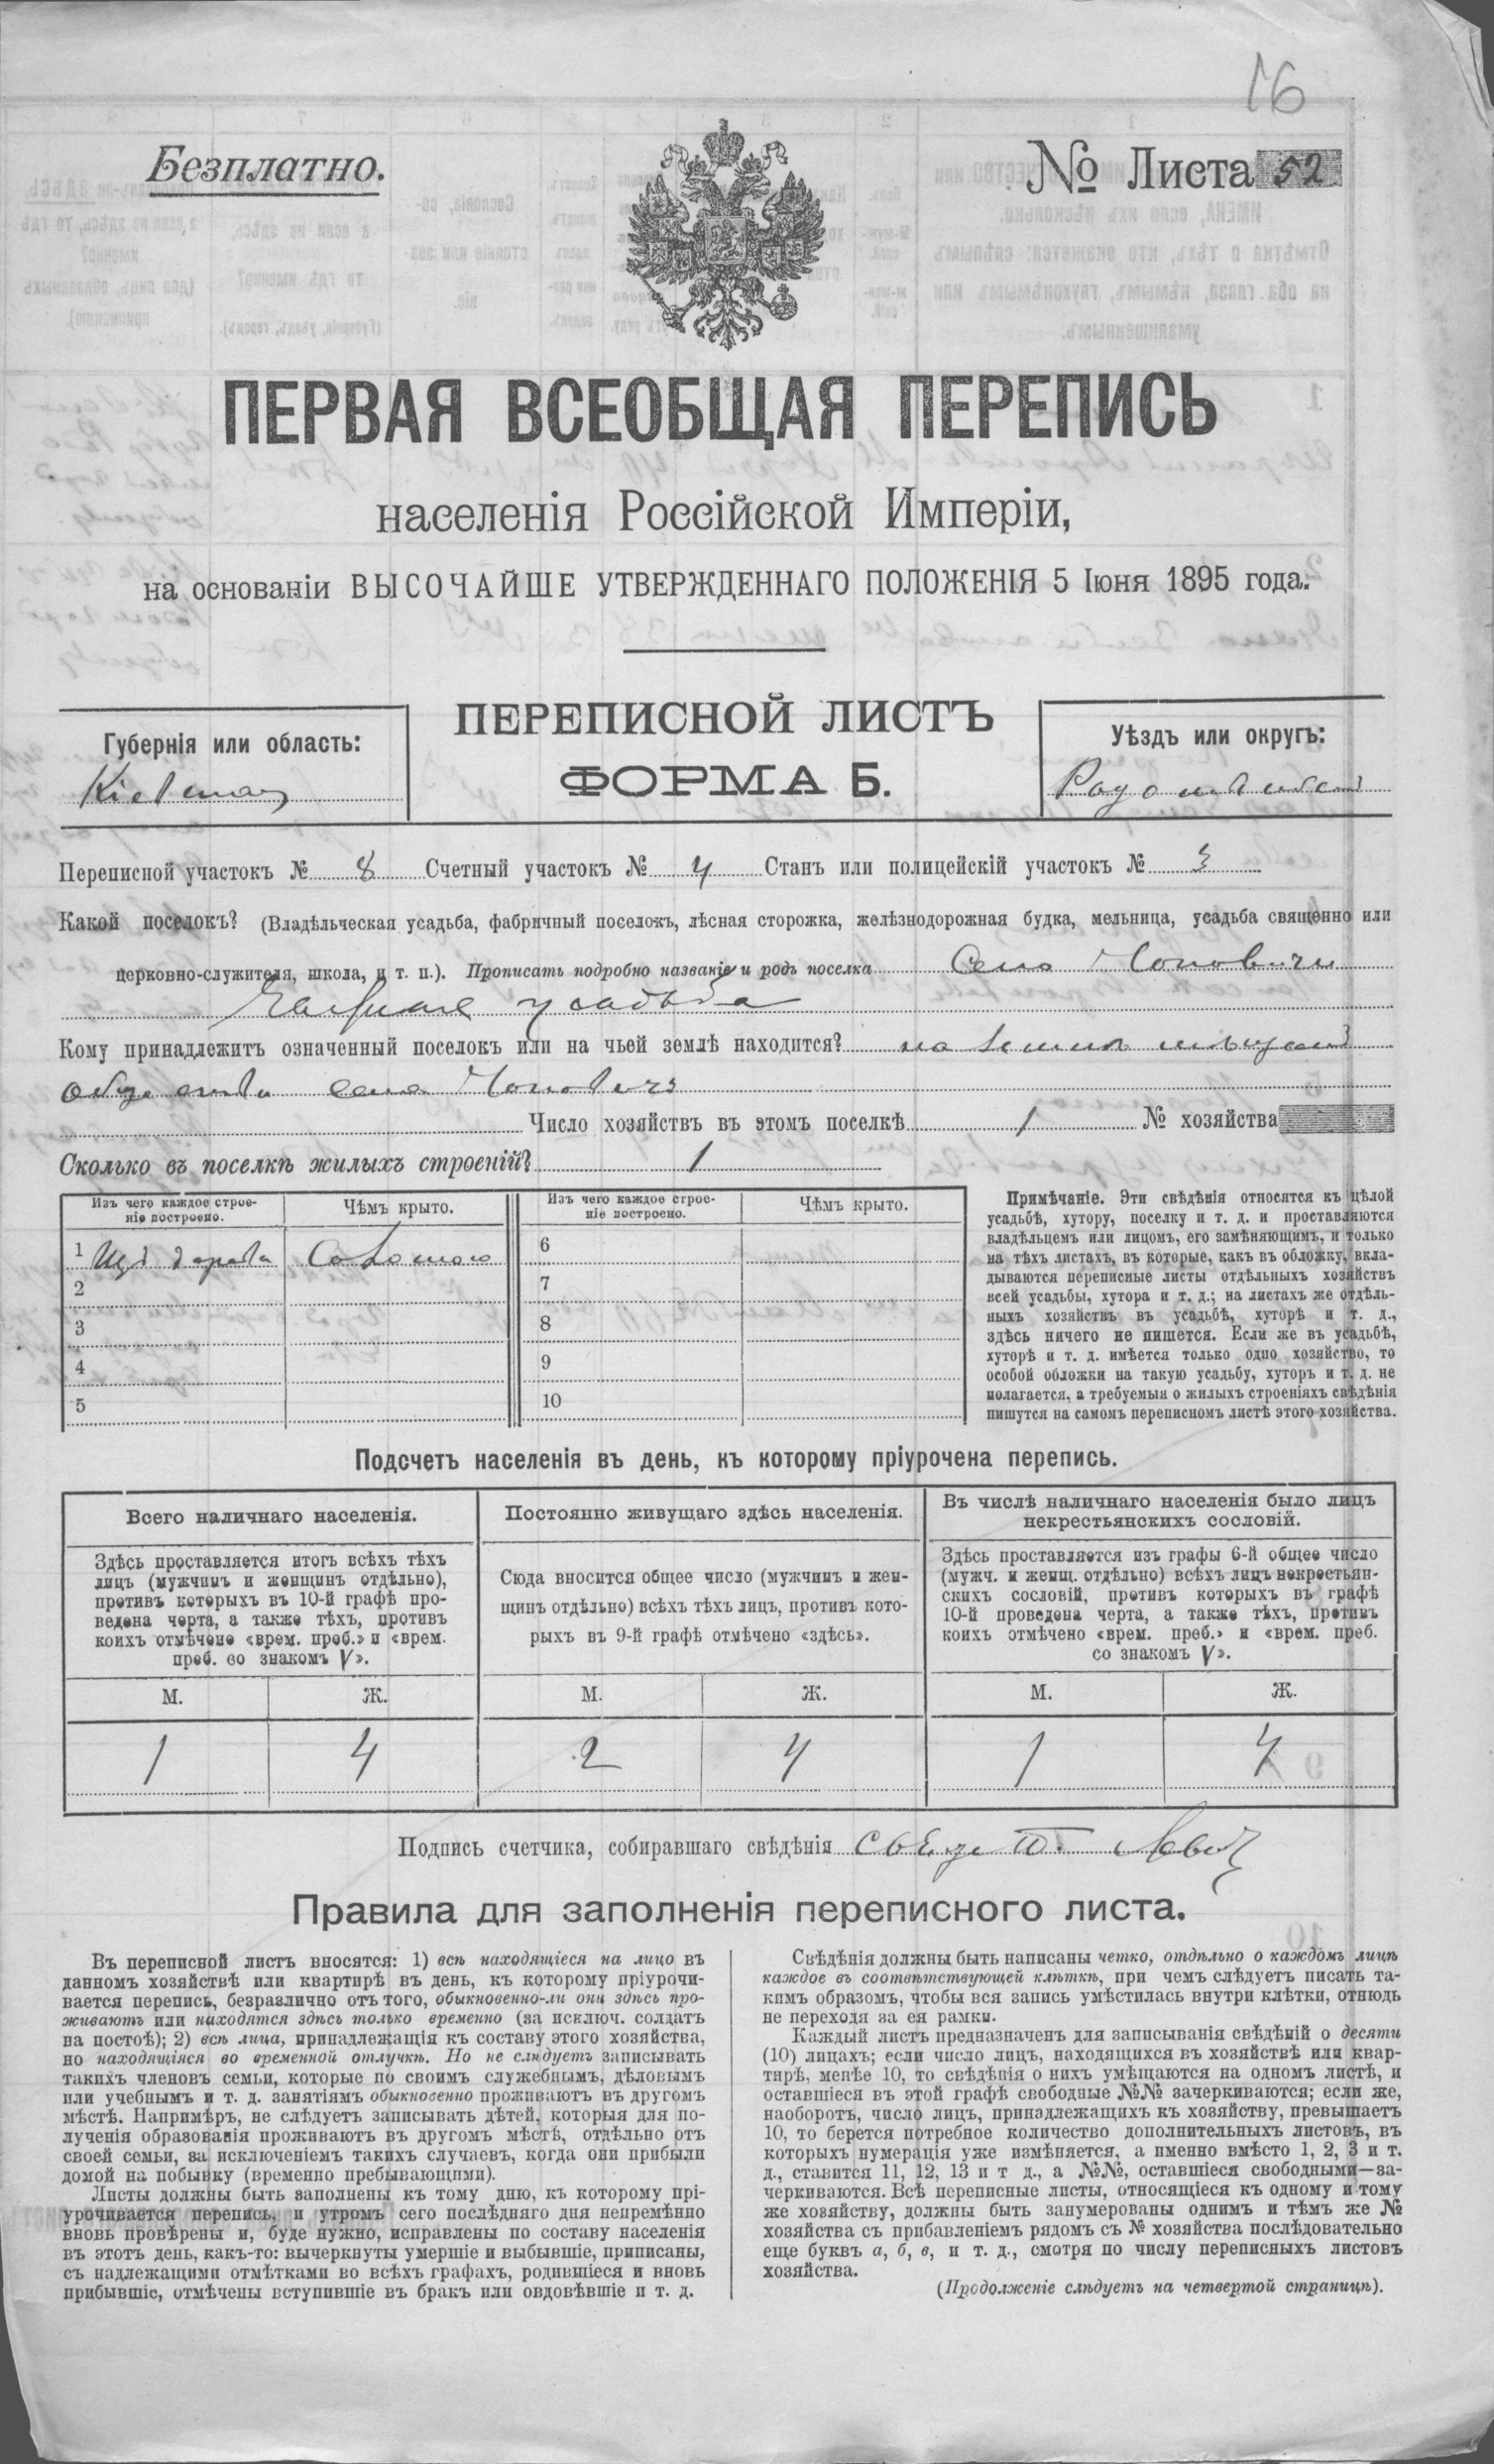 16
Безплатно.
№ Листа 52
ПЕРВАЯ ВСЕОБЩАЯ ПЕРЕПИСЬ
населенія Россійской Имперіи,
на основаніи ВЫСОЧАЙШЕ УТВЕРЖДЕННАГО ПОЛОЖЕНІЯ 5 Іюня 1895 года.
ПЕРЕПИСНОЙ ЛИСТЪ
ФОРМА Б.
Губернія или область:
Кіевская
Уѣздъ или округъ:
Радомысльскій
Переписной участокъ № 8 Счетный участокъ № 4 Станъ или полицейскій участокъ № 3
Какой поселокъ? (Владѣльческая усадьба, фабричный поселокъ, лѣсная сторожка, желѣзнодорожная будка, мельница, усадьба священно или
церковно-служителя, школа, и т. п.). Прописать подробно названіе и родъ поселка Село
усадьба
Кому принадлежитъ означенный поселокъ или на чьей землѣ находится? на
общества села
Число хозяйствъ въ этомъ поселкѣ 1 № хозяйства
Сколько въ поселкѣ жилыхъ строеній? 1
Изъ чего каждое строе-
ніе построено.
Чѣмъ крыто.
Изъ чего каждое строе-
ніе построено.
Чѣмъ крыто.
1 Изъ дерева Соломою
2
3
4
5
6
7
8
9
10
Примѣчаніе. Эти свѣдѣнія относятся къ цѣлой
усадьбѣ, хутору, поселку и т. д. и проставляются
владѣльцемъ или лицомъ, его замѣняющимъ, и только
на тѣхъ листахъ, въ которые, какъ въ обложку, вкла-
дываются переписные листы отдѣльныхъ хозяйствъ
всей усадьбы, хутора и т. д.; на листахъ же отдѣль-
ныхъ хозяйствъ въ усадьбѣ, хуторѣ и т. д.,
здѣсь ничего не пишется. Если же въ усадьбѣ,
хуторѣ и т. д. имѣется только одно хозяйство, то
особой обложки на такую усадьбу, хуторъ и т. д. не
полагается, а требуемыя о жилыхъ строеніяхъ свѣдѣнія
пишутся на самомъ переписномъ листѣ этого хозяйства.
Подсчетъ населенія въ день, къ которому пріурочена перепись.
Всего наличнаго населенія.
Здѣсь проставляется итогъ всѣхъ тѣхъ
лицъ (мужчинъ и женщинъ отдѣльно),
противъ которыхъ въ 10-й графѣ про-
ведена черта, а также тѣхъ, противъ
коихъ отмѣчено «врем. преб.» и «врем.
преб. со знакомъ V».
М. Ж.
1 4
Постоянно живущаго здѣсь населенія.
Сюда вносится общее число (мужчинъ и жен-
щинъ отдѣльно) всѣхъ тѣхъ лицъ, противъ кото-
рыхъ въ 9-й графѣ отмѣчено «здѣсь».
М. Ж.
2 4
Въ числѣ наличнаго населенія было лицъ
некрестьянскихъ сословій.
Здѣсь проставляется изъ графы 6-й общее число
(мужч. и женщ. отдѣльно) всѣхъ лицъ некрестьян-
скихъ сословій, противъ которыхъ въ графѣ
10-й проведена черта, а также тѣхъ, противъ
коихъ отмѣчено «врем. преб.» и «врем. преб.
со знакомъ V».
М. Ж.
1 4
Подпись счетчика, собиравшаго свѣдѣнія
Правила для заполненія переписного листа.
Въ переписной листъ вносятся: 1) всѣ находящіеся на лицо въ
данномъ хозяйствѣ или квартирѣ въ день, къ которому пріурочи-
вается перепись, безразлично отъ того, обыкновенно-ли они здѣсь про-
живаютъ или находятся здѣсь только временно (за исключ. солдатъ
на постоѣ); 2) всѣ лица, принадлежащія къ составу этого хозяйства,
но находящіяся во временной отлучкѣ. Но не слѣдуетъ записывать
такихъ членовъ семьи, которые по своимъ служебнымъ, дѣловымъ
или учебнымъ и т. д. занятіямъ обыкновенно проживаютъ въ другомъ
мѣстѣ. Напримѣръ, не слѣдуетъ записывать дѣтей, которыя для по-
лученія образованія проживаютъ въ другомъ мѣстѣ, отдѣльно отъ
своей семьи, за исключеніемъ такихъ случаевъ, когда они прибыли
домой на побывку (временно пребывающими).
Листы должны быть заполнены къ тому дню, къ которому прі-
урочивается перепись, и утромъ сего послѣдняго дня непремѣнно
вновь провѣрены и, буде нужно, исправлены по составу населенія
въ этотъ день, какъ-то: вычеркнуты умершіе и выбывшіе, приписаны,
съ надлежащими отмѣтками во всѣхъ графахъ, родившіеся и вновь
прибывшіе, отмѣчены вступившіе въ бракъ или овдовѣвшіе и т. д.
Свѣдѣнія должны быть написаны четко, отдѣльно о каждомъ лицѣ
каждое въ соотвѣтствующей клѣткѣ, при чемъ слѣдуетъ писать та-
кимъ образомъ, чтобы вся запись умѣстилась внутри клѣтки, отнюдь
не переходя за ея рамки.
Каждый листъ предназначенъ для записыванія свѣдѣній о десяти
(10) лицахъ; если число лицъ, находящихся въ хозяйствѣ или квар-
тирѣ, менѣе 10, то свѣдѣнія о нихъ умѣщаются на одномъ листѣ, и
оставшіеся въ этой графѣ свободные №№ зачеркиваются; если же,
наоборотъ, число лицъ, принадлежащихъ къ хозяйству, превышаетъ
10, то берется потребное количество дополнительныхъ листовъ, въ
которыхъ нумерація уже измѣняется, а именно вмѣсто 1, 2, 3 и т.
д., ставится 11, 12, 13 и т д., а №№, оставшіеся свободными—за-
черкиваются. Всѣ переписные листы, относящіеся къ одному и тому
же хозяйству, должны быть занумерованы однимъ и тѣмъ же №
хозяйства съ прибавленіемъ рядомъ съ № хозяйства послѣдовательно
еще буквъ а, б, в, и т. д., смотря по числу переписныхъ листовъ
хозяйства.
(Продолженіе слѣдуетъ на четвертой страницѣ).